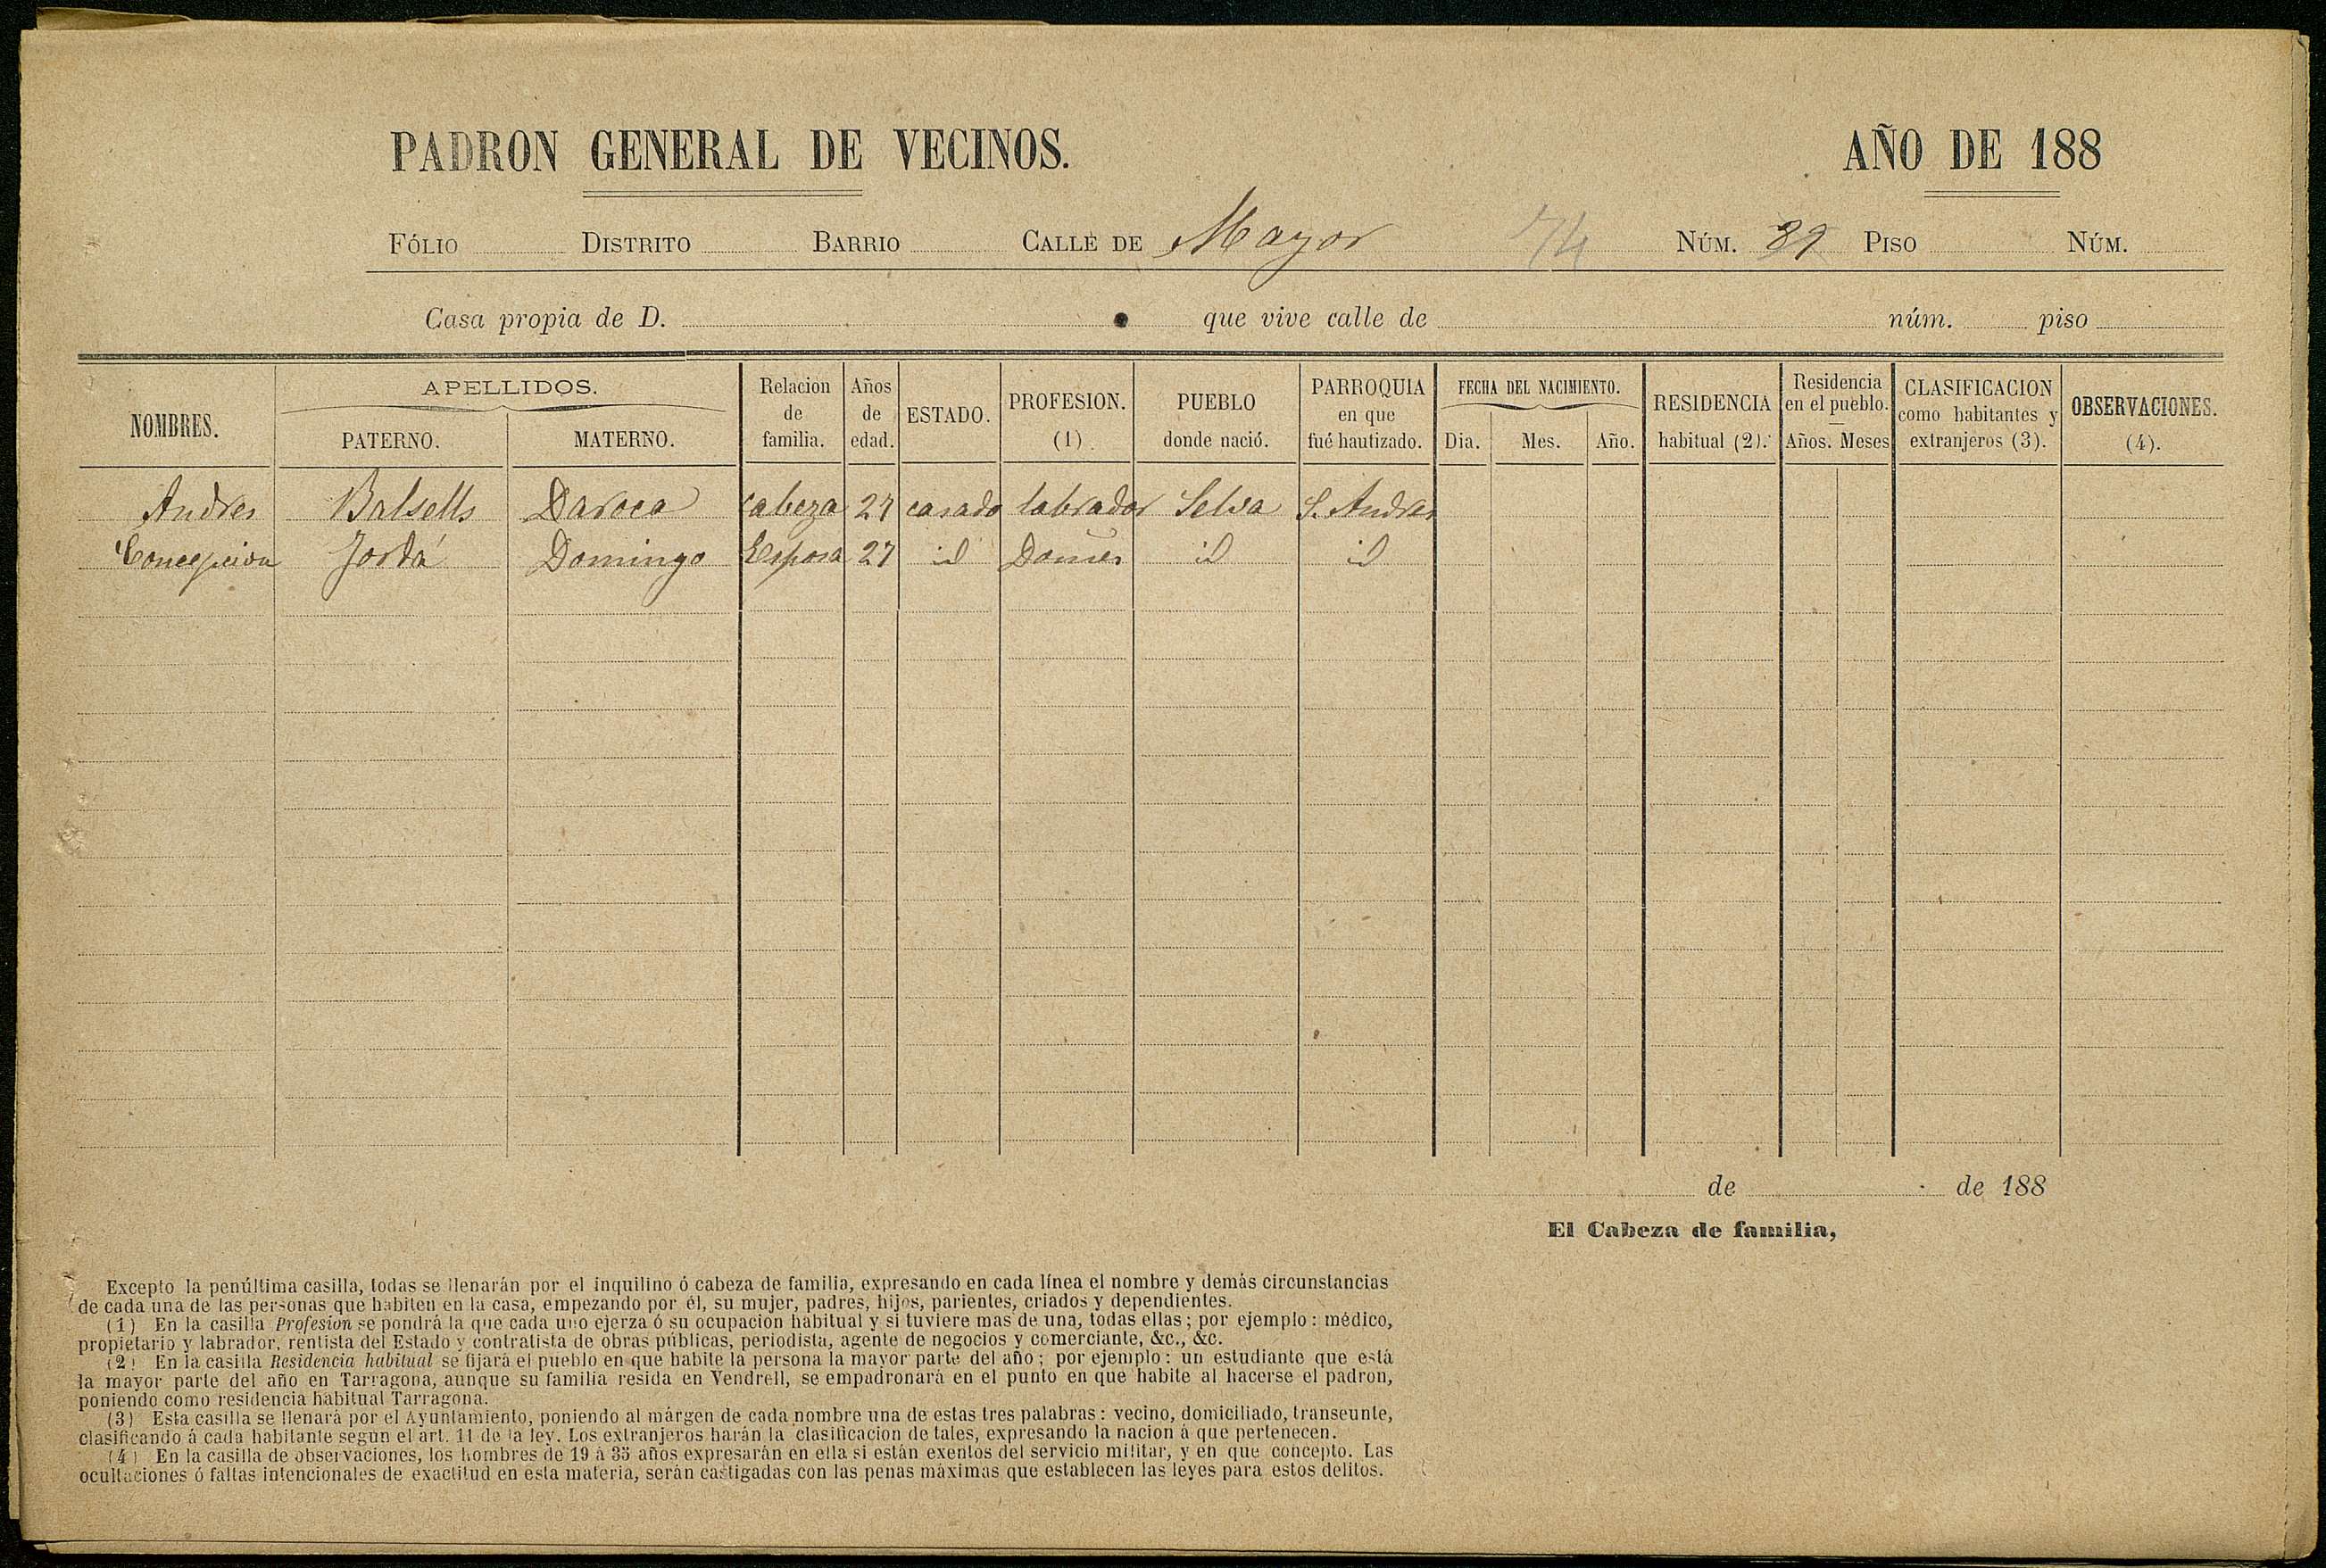 PADRON GENERAL DE VECINOS. AÑO DE 188
FÓLIO DISTRITO BARRIO CALLE DE Mayor 74 NÚM. 39 PISO NÚM.
Casa propia de D. que vive calle de núm. piso
NOMBRES. APELLIDOS. PATERNO. MATERNO. Relacion de familia. Años de edad. ESTADO. PROFESION. (1) PUEBLO donde nació. PARROQUIA en que fué bautizado. FECHA DEL NACIMIENTO. Dia. Mes. Año. RESIDENCIA habitual (2). Residencia en el pueblo. Años. Meses CLASIFICACION como habitantes y extranjeros (3). OBSERVACIONES. (4).
Andres Balsells Daroca cabeza 27 casado labrador Selva S. Andres
Concepcion Jordá Domingo Esposa 27 id Domes id id
de de 188
El Cabeza de familia,
Excepto la penúltima casilla, todas se llenarán por el inquilino ó cabeza de familia, expresando en cada línea el nombre y demás circunstancias
de cada una de las personas que habiten en la casa, empezando por él, su mujer, padres, hijos, parientes, criados y dependientes.
(1) En la casilla Profesion se pondrá la que cada uno ejerza ó su ocupacion habitual y si tuviere mas de una, todas ellas; por ejemplo: médico,
propietario y labrador, rentista del Estado y contratista de obras públicas, periodista, agente de negocios y comerciante, &c., &c.
(2) En la casilla Residencia habitual se fijará el pueblo en que habite la persona la mayor parte del año; por ejemplo: un estudiante que está
la mayor parte del año en Tarragona, aunque su familia resida en Vendrell, se empadronará en el punto en que habite al hacerse el padron,
poniendo como residencia habitual Tarragona.
(3) Esta casilla se llenará por el Ayuntamiento, poniendo al márgen de cada nombre una de estas tres palabras: vecino, domiciliado, transeunte,
clasificando á cada habitante segun el art. 11 de la ley. Los extranjeros harán la clasificacion de tales, expresando la nacion á que pertenecen.
(4) En la casilla de observaciones, los hombres de 19 á 35 años expresarán en ella si están exentos del servicio militar, y en que concepto. Las
ocultaciones ó faltas intencionales de exactitud en esta materia, serán castigadas con las penas máximas que establecen las leyes para estos delitos.